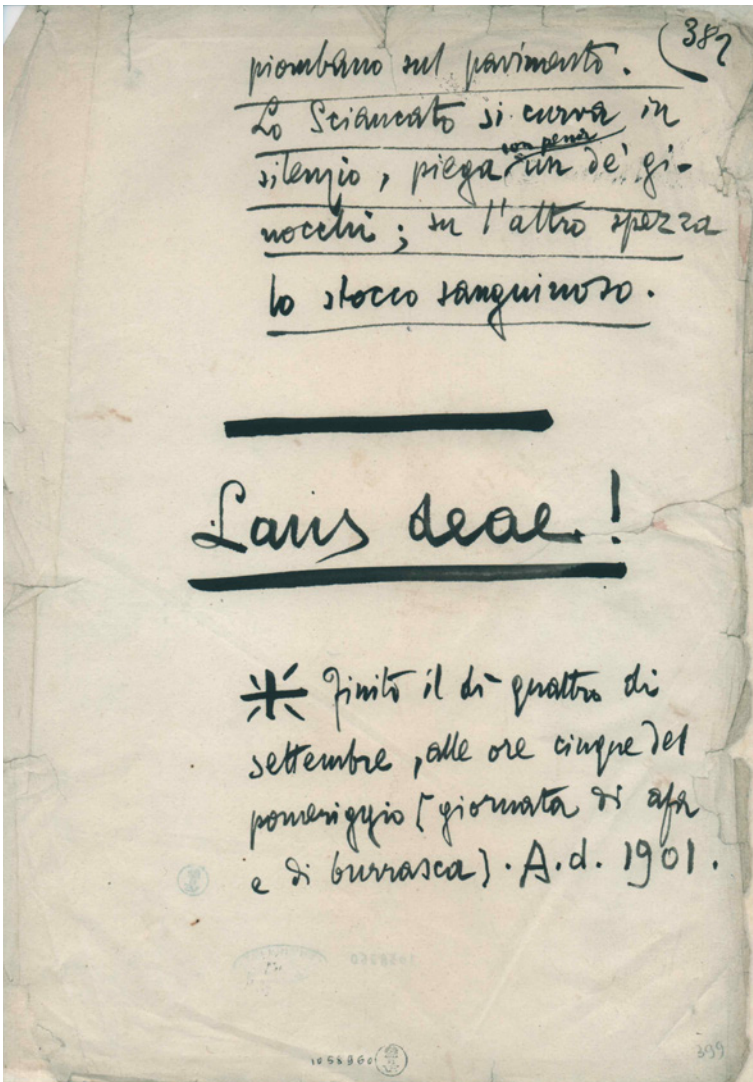 382
piombano sul pavimento.
Lo Sciancato si curva in
con pena
silenzio, piega un de' gi-
nocchi; su l'altro spezza
lo stocco sanguinoso.
Laus deae!
Finito il dì quattro di
settembre, alle ore cinque del
pomeriggio (giornata di afa
e di burrasca). A.d. 1901.
1058960
399